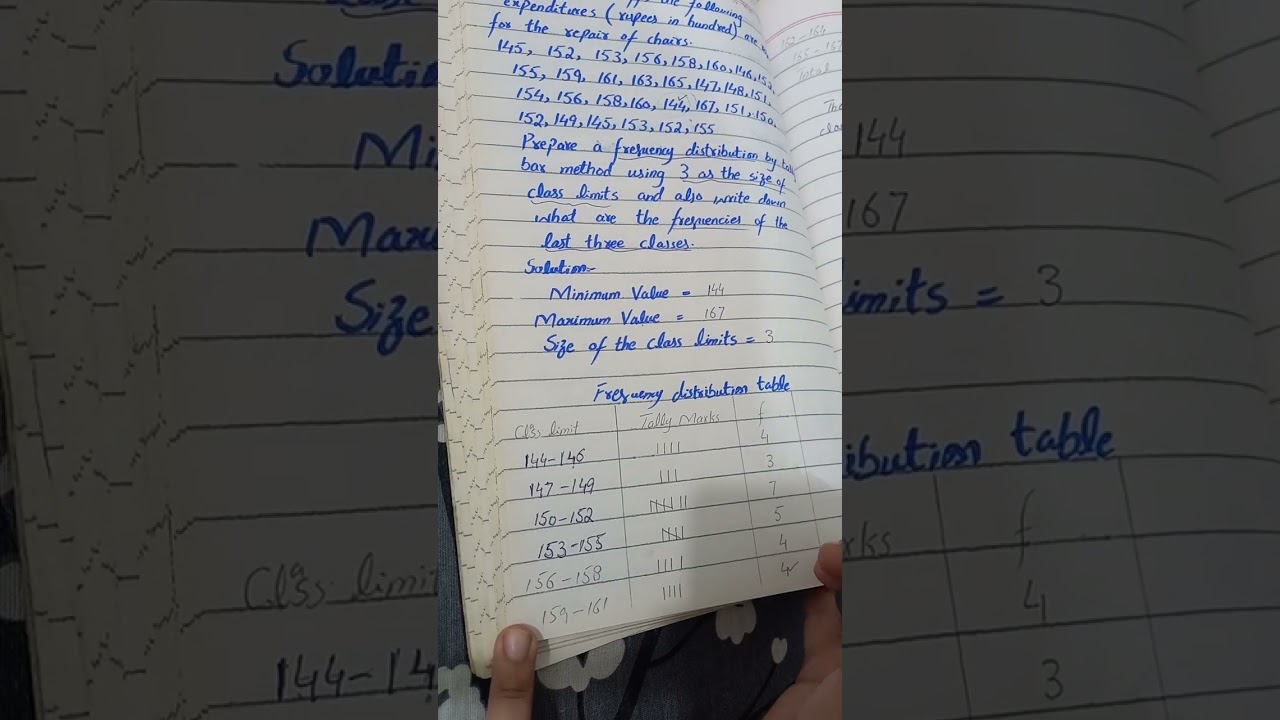 the following
expenditures (rupees in hundred) are
for the repair of chairs.
145, 152, 153, 156, 158, 160, 146, 152,
155, 159, 161, 163, 165, 147, 148, 151,
154, 156, 158, 160, 144, 167, 151, 150,
152, 149, 145, 153, 152, 155
Prepare a frequency distribution by
bar method using 3 as the size of
class limits and also write down
what are the frequencies of the
last three classes.
Solution:-
Minimum Value = 144
Maximum Value = 167
Size of the class limits = 3
Frequency distribution table
Class limit Tally Marks f
144-146 |||| 4
147-149 ||| 3
150-152 7
153-155 5
156-158 |||| 4
159-161 |||| 4
162-164
Total